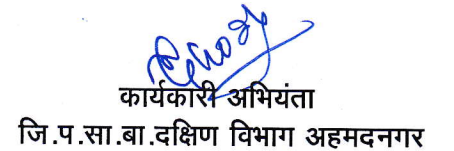 कार्यकारी अभियंता
जि.प.सा.बा.दक्षिण विभाग अहमदनगर